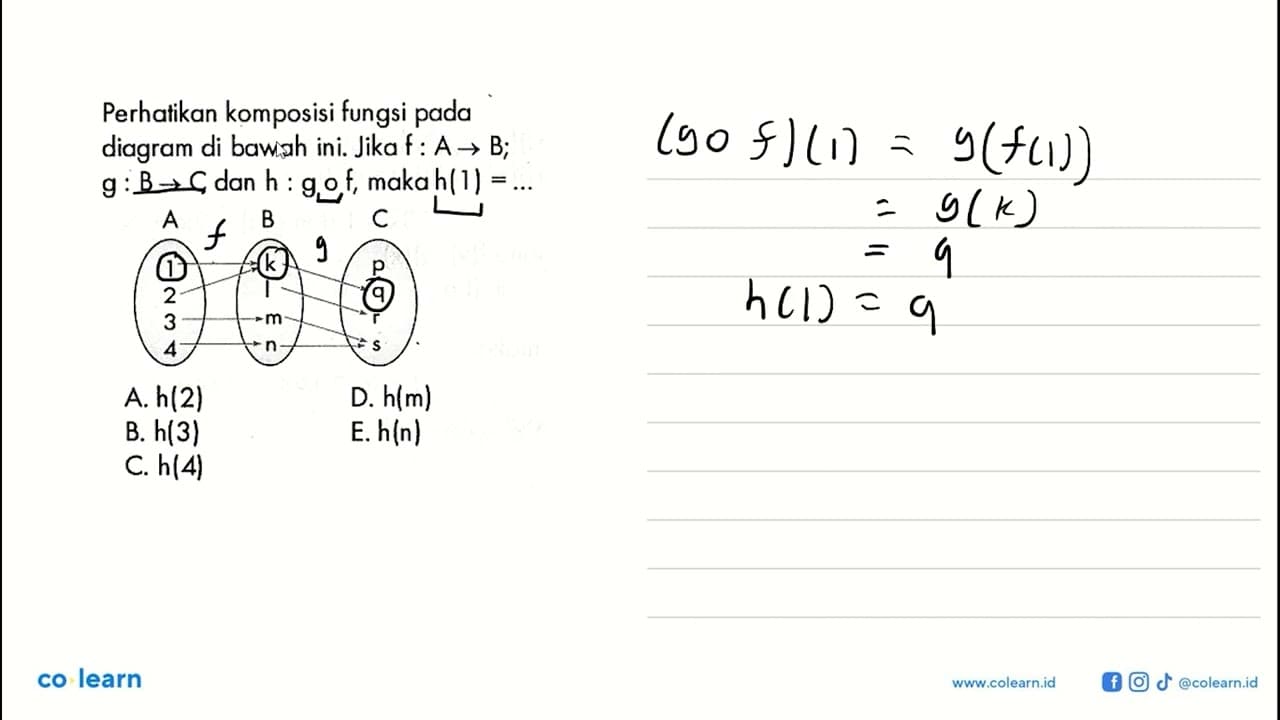 Perhatikan komposisi fungsi pada
diagram di bawah ini. Jika f : A → B;
g : B → C dan h : g o f, maka h(1) = ...
A B C
f g
1 k p
2 l q
3 m r
4 n s
A. h(2) D. h(m)
B. h(3) E. h(n)
C. h(4)
(g o f)(1) = g(f(1))
= g(k)
= q
h(1) = q
co learn
www.colearn.id @colearn.id